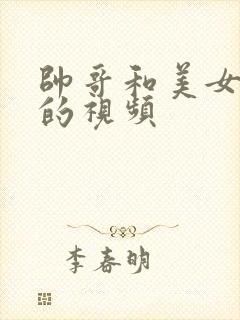 帥哥和美女
的視頻
李春明